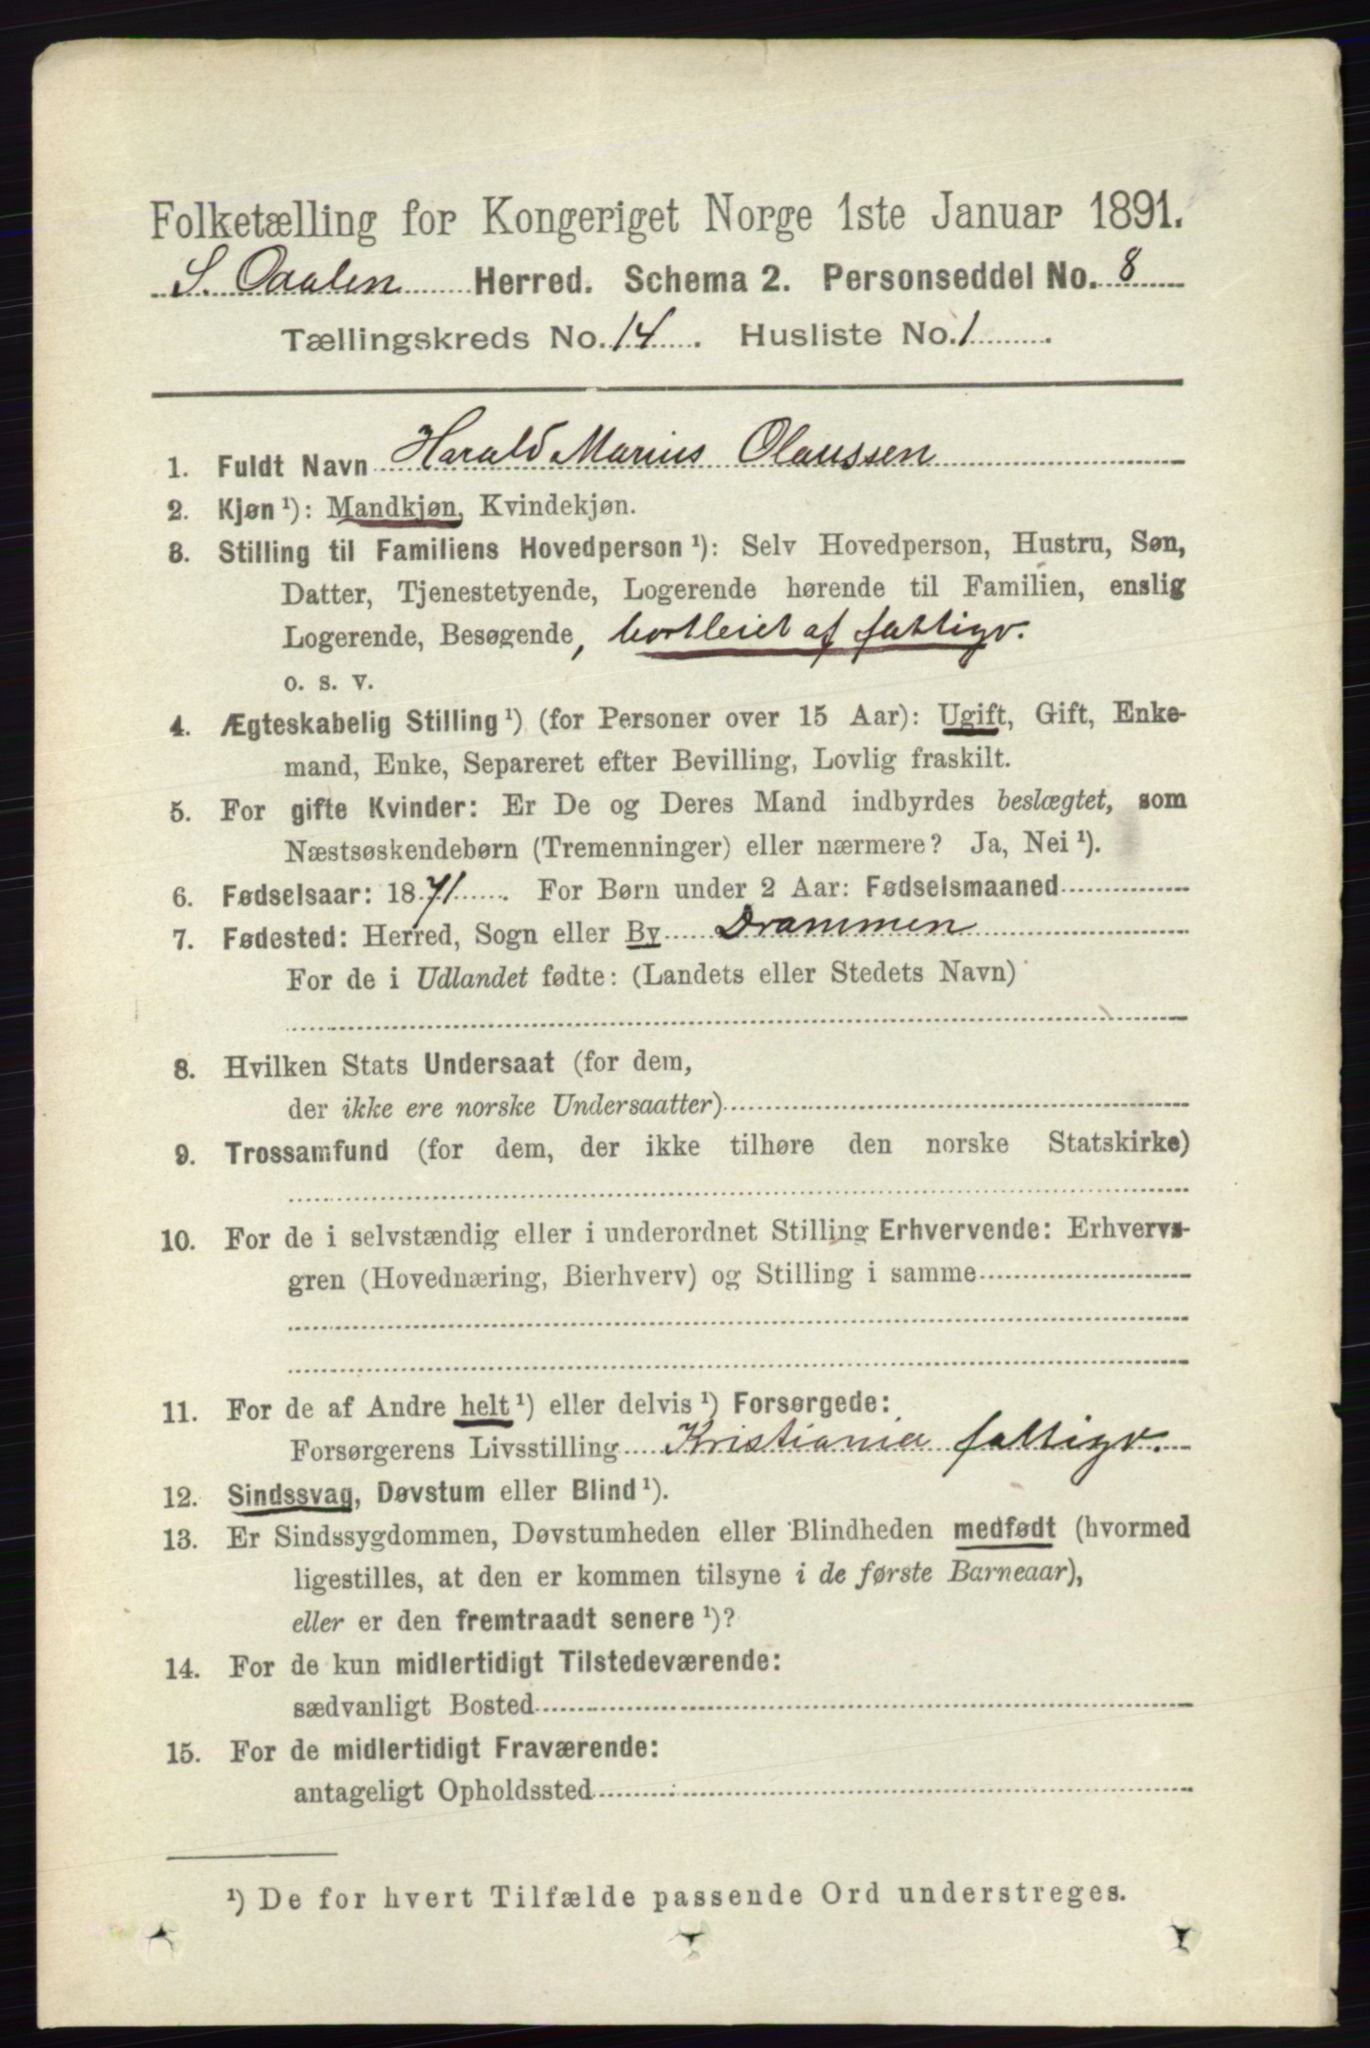 Folketælling for Kongeriget Norge 1ste Januar 1891.
S. Odalen Herred. Schema 2. Personseddel No. 8
Tællingskreds No. 14. Husliste No. 1.
1. Fuldt Navn Harald Marius Olaussen
2. Kjøn ¹): Mandkjøn, Kvindekjøn.
3. Stilling til Familiens Hovedperson ¹): Selv Hovedperson, Hustru, Søn,
Datter, Tjenestetyende, Logerende hørende til Familien, enslig
Logerende, Besøgende, bortleiet af fattigv.
o. s. v.
4. Ægteskabelig Stilling ¹) (for Personer over 15 Aar): Ugift, Gift, Enke-
mand, Enke, Separeret efter Bevilling, Lovlig fraskilt.
5. For gifte Kvinder: Er De og Deres Mand indbyrdes beslægtet, som
Næstsøskendebørn (Tremenninger) eller nærmere? Ja, Nei ¹).
6. Fødselsaar: 1871. For Børn under 2 Aar: Fødselsmaaned
7. Fødested: Herred, Sogn eller By Drammen
For de i Udlandet fødte: (Landets eller Stedets Navn)
8. Hvilken Stats Undersaat (for dem,
der ikke ere norske Undersaatter)
9. Trossamfund (for dem, der ikke tilhøre den norske Statskirke)
10. For de i selvstændig eller i underordnet Stilling Erhvervende: Erhvervs-
gren (Hovednæring, Bierhverv) og Stilling i samme
11. For de af Andre helt ¹) eller delvis ¹) Forsørgede:
Forsørgerens Livsstilling Kristiania fattigv.
12. Sindssvag, Døvstum eller Blind ¹).
13. Er Sindssygdommen, Døvstumheden eller Blindheden medfødt (hvormed
ligestilles, at den er kommen tilsyne i de første Barneaar),
eller er den fremtraadt senere ¹)?
14. For de kun midlertidigt Tilstedeværende:
sædvanligt Bosted
15. For de midlertidigt Fraværende:
antageligt Opholdssted
¹) De for hvert Tilfælde passende Ord understreges.